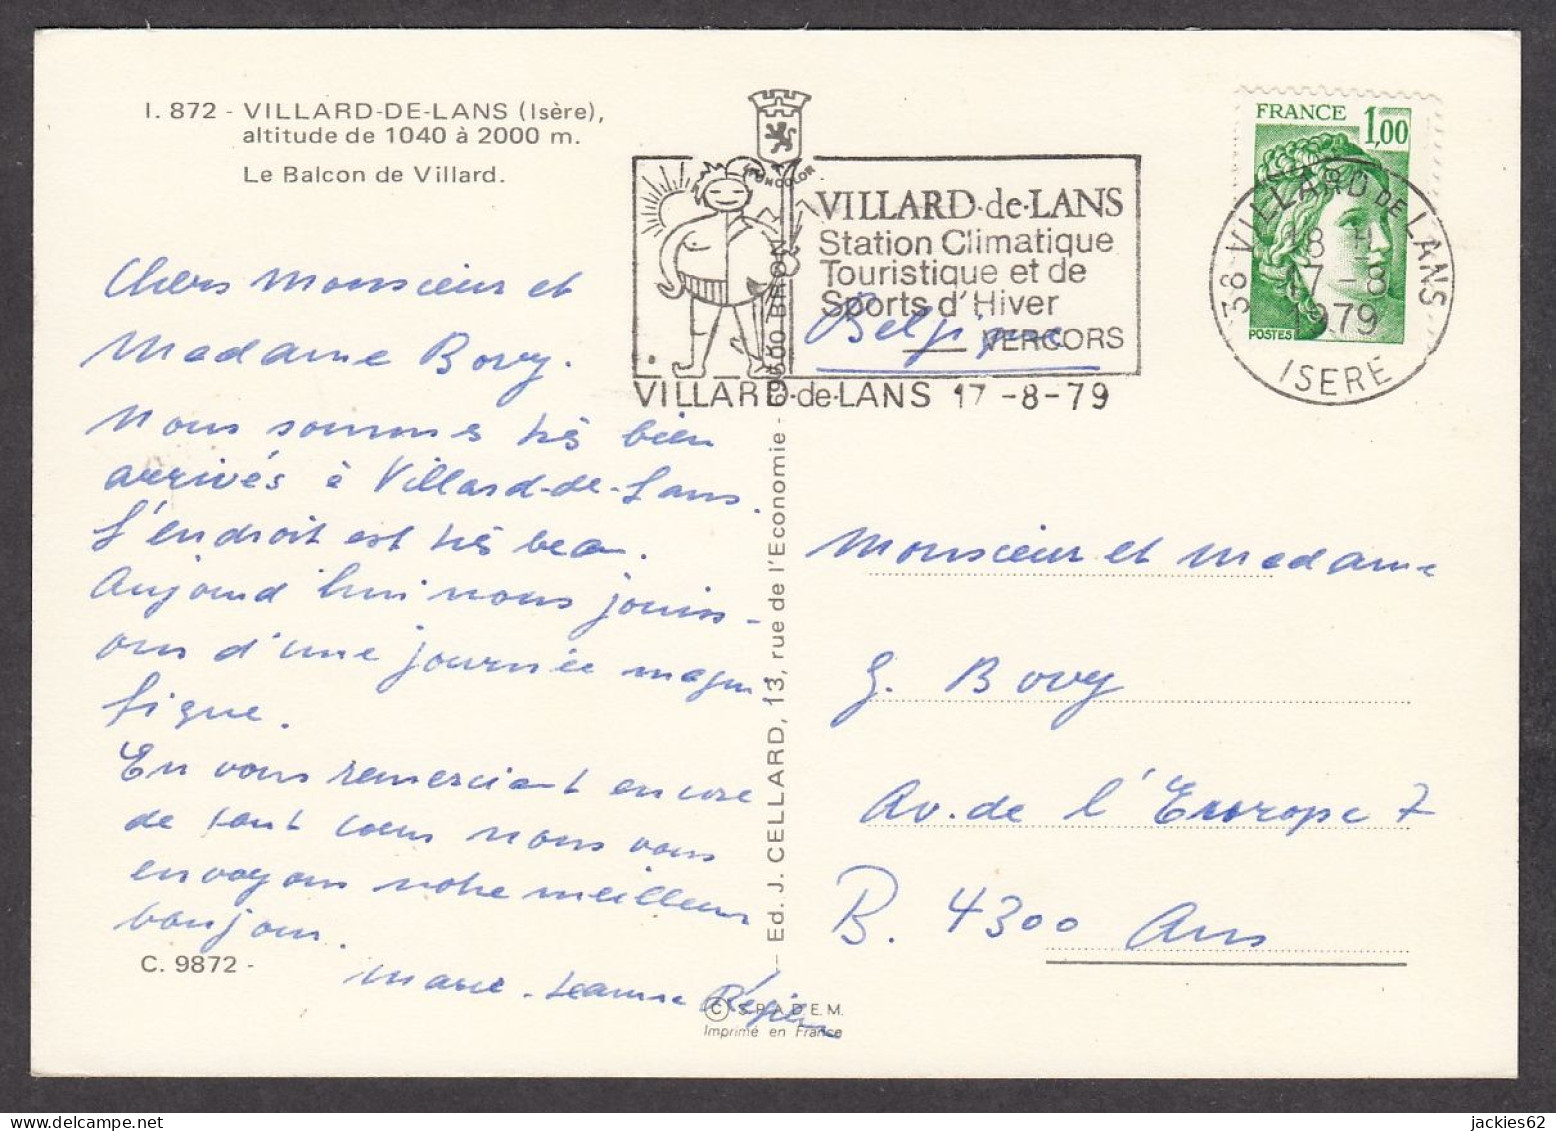 I. 872 - VILLARD-DE-LANS (Isère),
altitude de 1040 à 2000 m.
Le Balcon de Villard.
Chers Monsieur et
Madame Bovy.
Nous sommes très bien
arrivés à Villard-de-Lans.
L'endroit est très beau.
Aujourd'hui nous jouiss-
ons d'une journée magni
fique.
En vous remerciant encore
de tout coeur nous vous
envoyons notre meilleur
bonjour.
Marie-Jeanne
C. 9872 -
VILLARD-de-LANS
Station Climatique
Touristique et de
Sports d'Hiver
VERCORS
VILLARD-de-LANS 17 -8-79
Belgique
FRANCE 1,00
POSTES
38 VILLARD DE LANS
18 H
17 -8
1979
ISERE
Ed. J. CELLARD, 13, rue de l'Economie - 69500 BRON
COMCOLOR
Monsieur et Madame
G. Bovy
Av. de l'Europe 7
B. 4300 Ans
© S.P.A.D.E.M.
Imprimé en France
jackies62